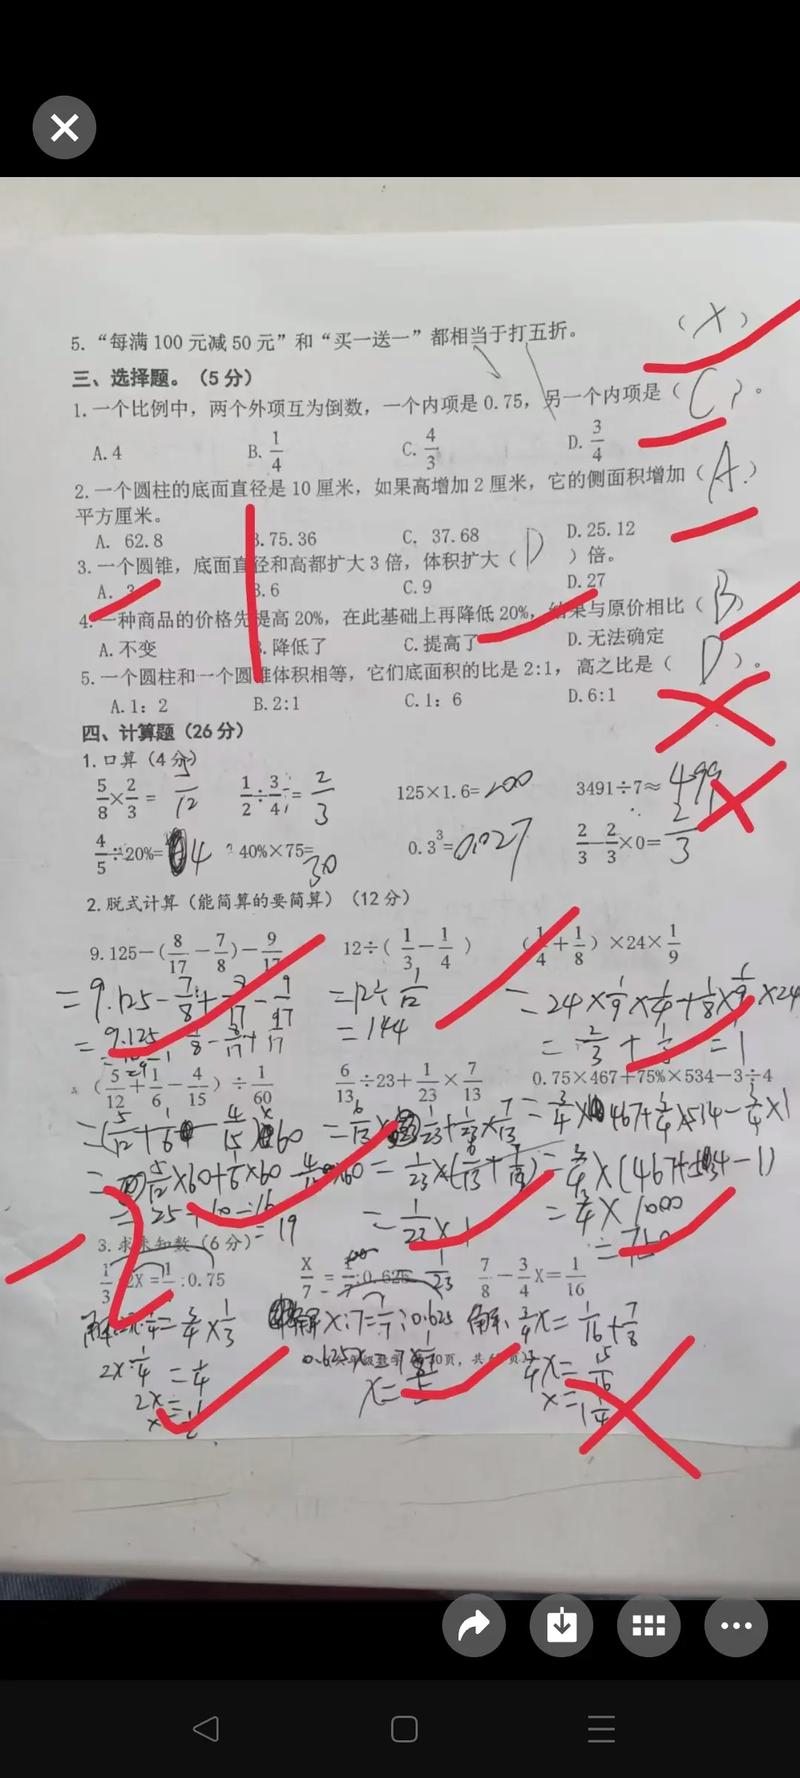 5. “每满 100 元减 50 元”和“买一送一”都相当于打五折。 (X)
三、选择题。(5 分)
1. 一个比例中，两个外项互为倒数，一个内项是 0.75，另一个内项是（ C ）。
A. 4 B. 1/4 C. 4/3 D. 3/4
2. 一个圆柱的底面直径是 10 厘米，如果高增加 2 厘米，它的侧面积增加（ A ）
平方厘米。
A. 62.8 B.75.36 C. 37.68 D.25.12
3. 一个圆锥，底面直径和高都扩大 3 倍，体积扩大（ D ）倍。
A. 3 B.6 C.9 D.27
4. 一种商品的价格先提高 20%，在此基础上再降低 20%，结果与原价相比（ B ）
A. 不变 B.降低了 C.提高了 D.无法确定
5. 一个圆柱和一个圆锥体积相等，它们底面积的比是 2:1，高之比是（ D ）。
A.1：2 B.2:1 C.1：6 D.6:1
四、计算题(26 分)
1. 口算（4 分）
5/8×2/3 = 5/12 1/2÷3/4= 2/3 125×1.6=200 3491÷7≈ 499
4/5÷20%= 4 40%×75= 30 0.3³=0.027 2/3-2/3×0= 2/3
2. 脱式计算（能简算的要简算）（12 分）
9.125-(8/17-7/8)-9/17 12÷(1/3-1/4) (1/4+1/8)×24×1/9
=12÷1/12 =24×1/9×1/4+1/8×1/9×24
=144 =2/3+1/3=1
(5/12+1/6-4/15)÷1/60 6/13÷23+1/23×7/13 0.75×467+75%×534-3÷4
=(5/12+1/6-4/15)×60 =3/4×467+3/4×534-3/4×1
=1/23×(6/13+7/13) =3/4×(467+534-1)
=25+10-16 =1/23×1 =3/4×1000
=19 1/23 =750
-2
3. 求未知数（6 分）
1/3:2X=1/4:0.75 X/7=1/7:0.625 7/8-3/4X=1/16
解: 2x·1/4=3/4×1/3 解 x:7=1/7:0.625 解: 3/4x=1/16+7/8
2x·1/4=1/4 3/4x=15/16
x=1 1/4